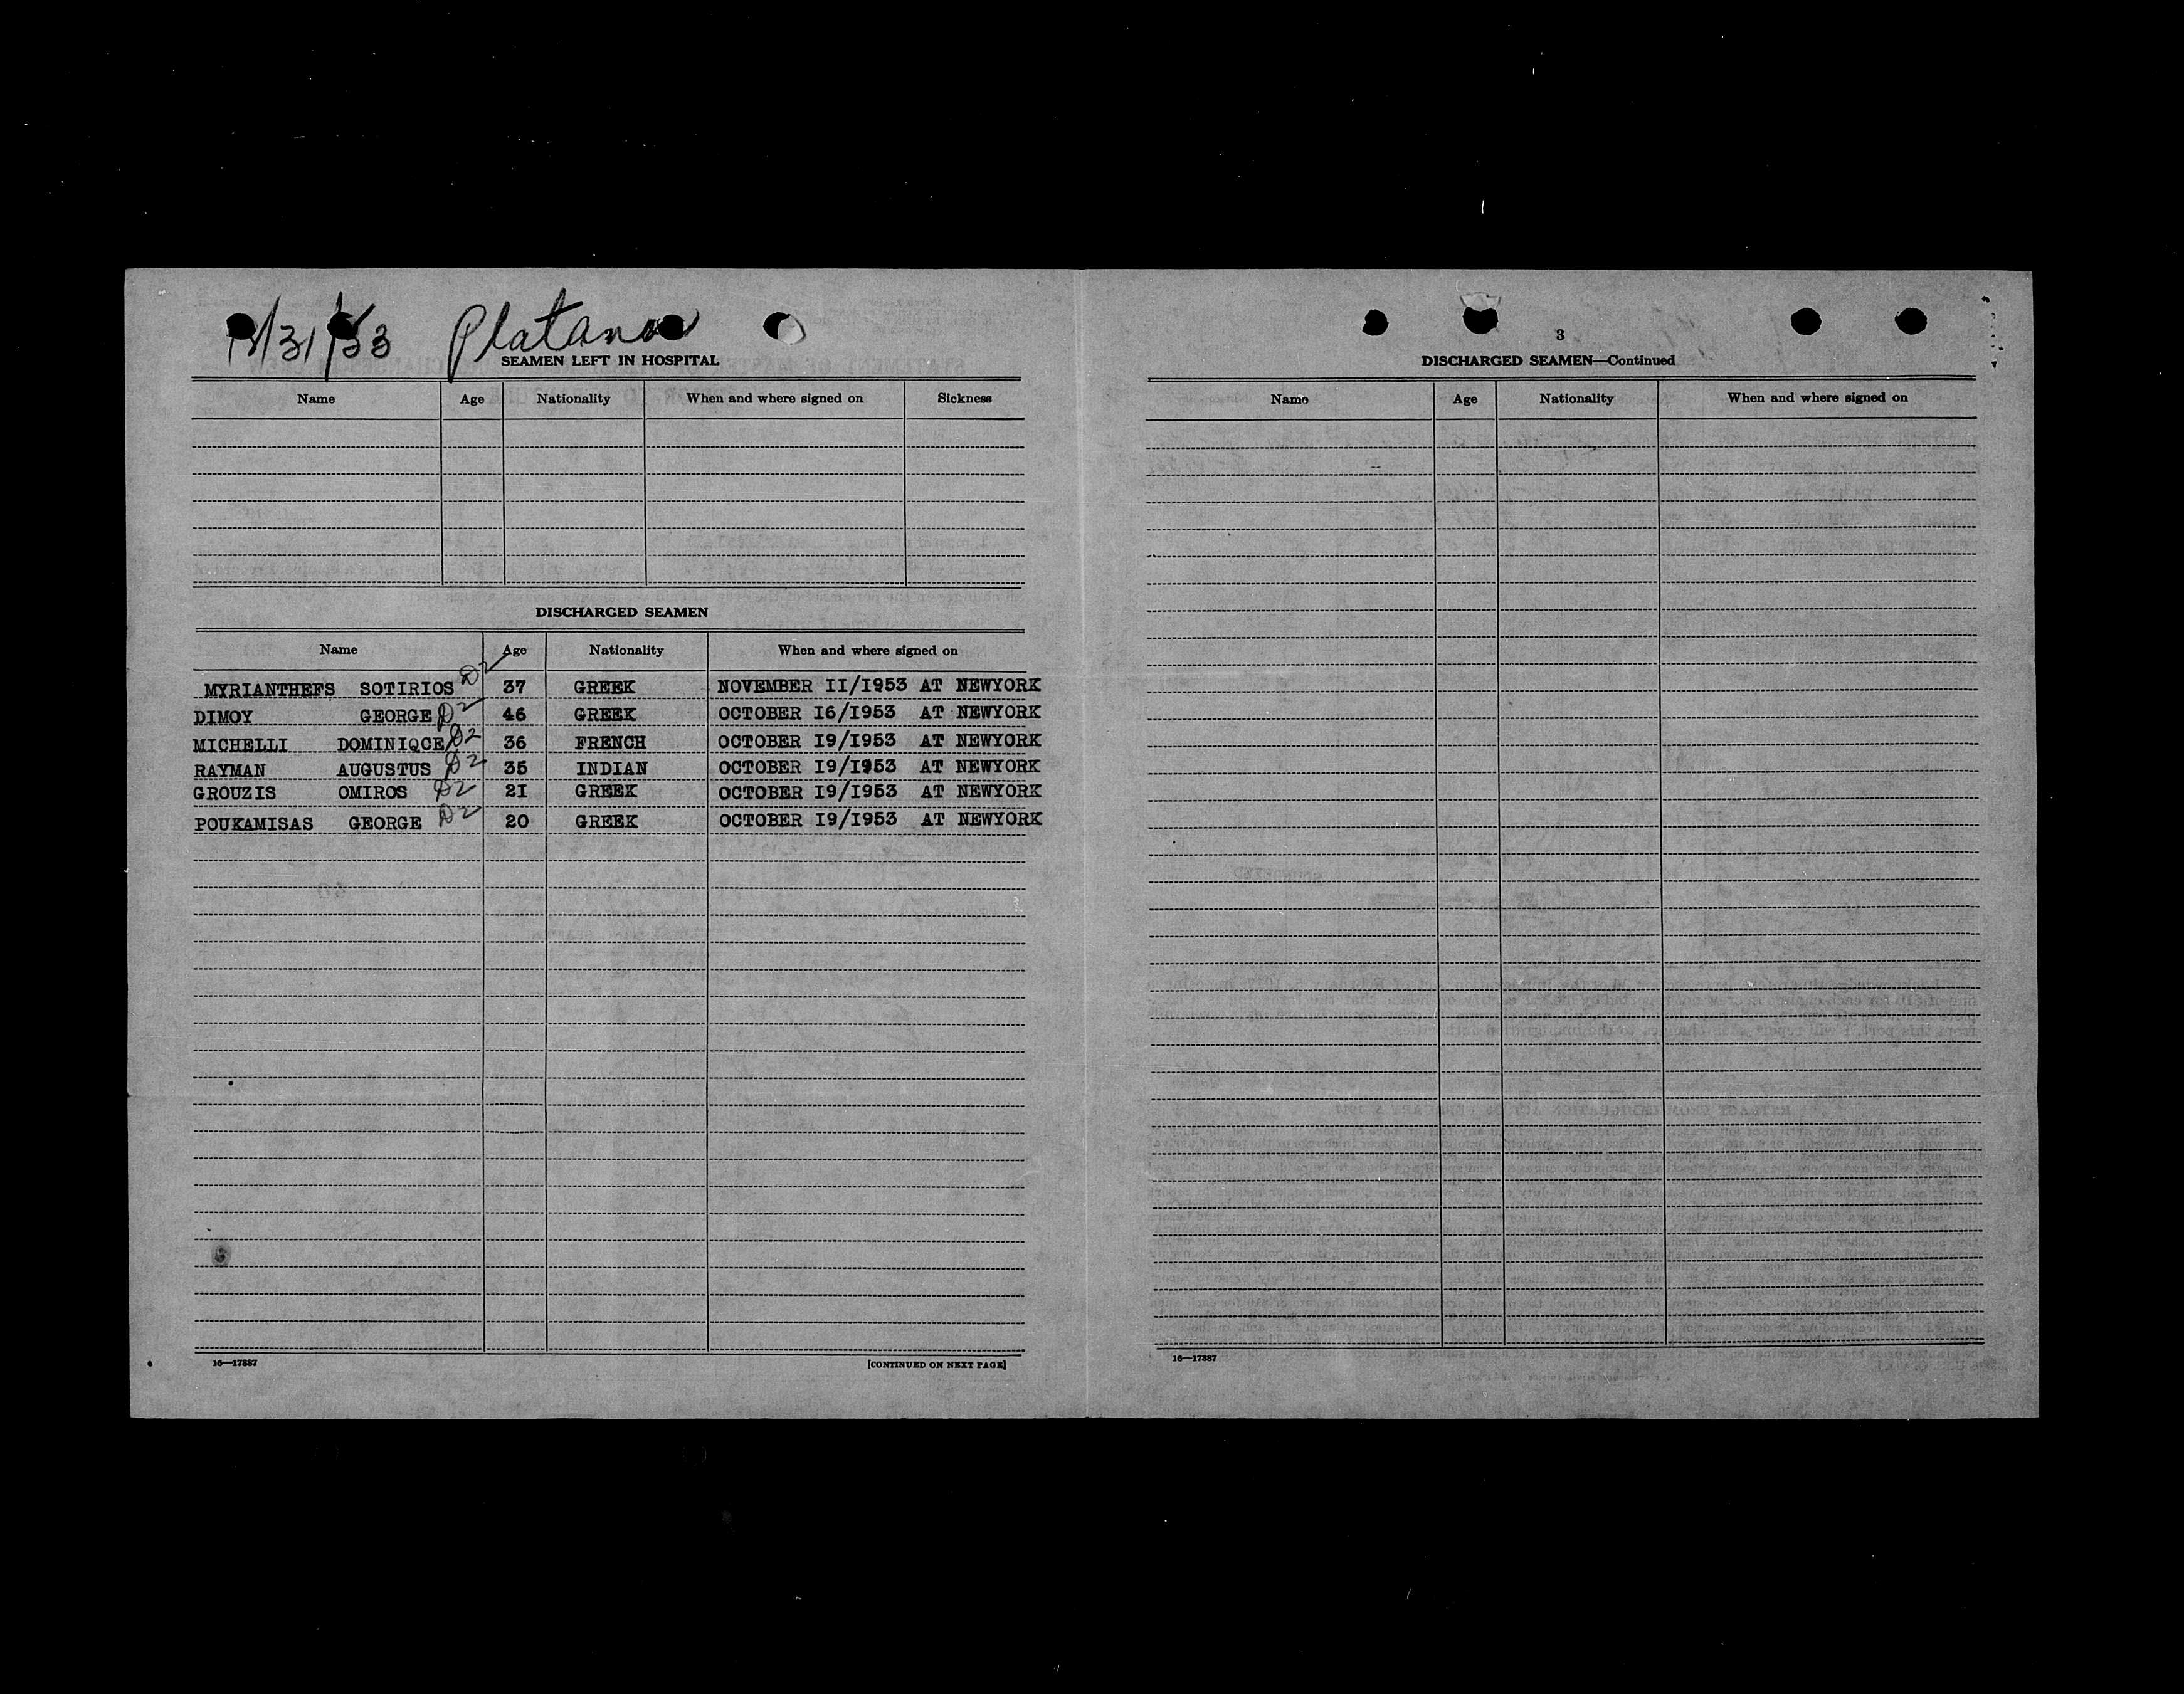 /31/53 Platano
SEAMEN LEFT IN HOSPITAL
Name Age Nationality When and where signed on Sickness
DISCHARGED SEAMEN
Name Age Nationality When and where signed on
MYRIANTHEFS SOTIRIOS D2 37 GREEK NOVEMBER II/I953 AT NEWYORK
DIMOY GEORGE D2 46 GREEK OCTOBER I6/I953 AT NEWYORK
MICHELLI DOMINIQCE D2 36 FRENCH OCTOBER I9/I953 AT NEWYORK
RAYMAN AUGUSTUS D2 35 INDIAN OCTOBER I9/I953 AT NEWYORK
GROUZIS OMIROS D2 2I GREEK OCTOBER I9/I953 AT NEWYORK
POUKAMISAS GEORGE D2 20 GREEK OCTOBER I9/I953 AT NEWYORK
16—17887 [CONTINUED ON NEXT PAGE]
3
DISCHARGED SEAMEN—Continued
Name Age Nationality When and where signed on
16—17887